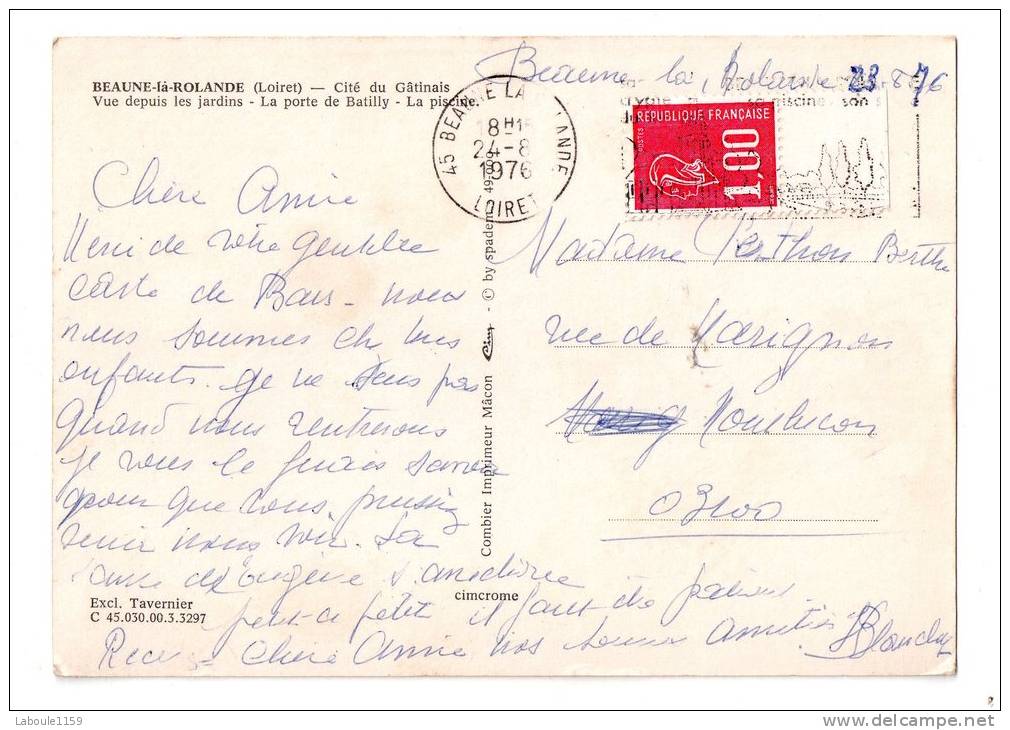 BEAUNE-là-ROLANDE (Loiret) — Cité du Gâtinais
Vue depuis les jardins - La porte de Batilly - La piscine.
Beaune la Rolande 23 8 76
45 BEAUNE LA ROLANDE
18H15
24-8
1976
LOIRET
crypte piscine son
RÉPUBLIQUE FRANÇAISE
POSTES
1.00F
Chère Amie
Merci de votre gentille
carte de Bais - nous
nous sommes ch nos
enfants. Je ne sais pas
quand nous rentrerons
je vous le ferais savoir
pour que vous puissiez
venir nous voir. La
santé d'Eugène s'améliore
petit-à petit il faut de la patience.
Recevez - Chère Amie nos bonnes Amitiés
Blanche
Madame Perthon Berthe
rue de Marignon
Montlucon
03100
Combier Imprimeur Mâcon Cim - © by spadem
cimcrome
Excl. Tavernier
C 45.030.00.3.3297
Laboule1159
www.delcampe.net